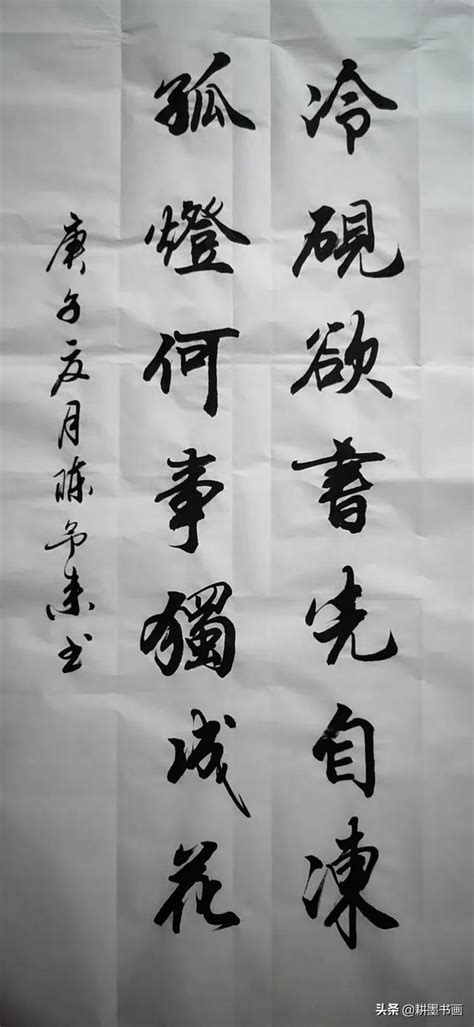 冷硯欲書先自凍
孤燈何事獨成花
庚子夏月陳予柬书
头条 @耕墨书画